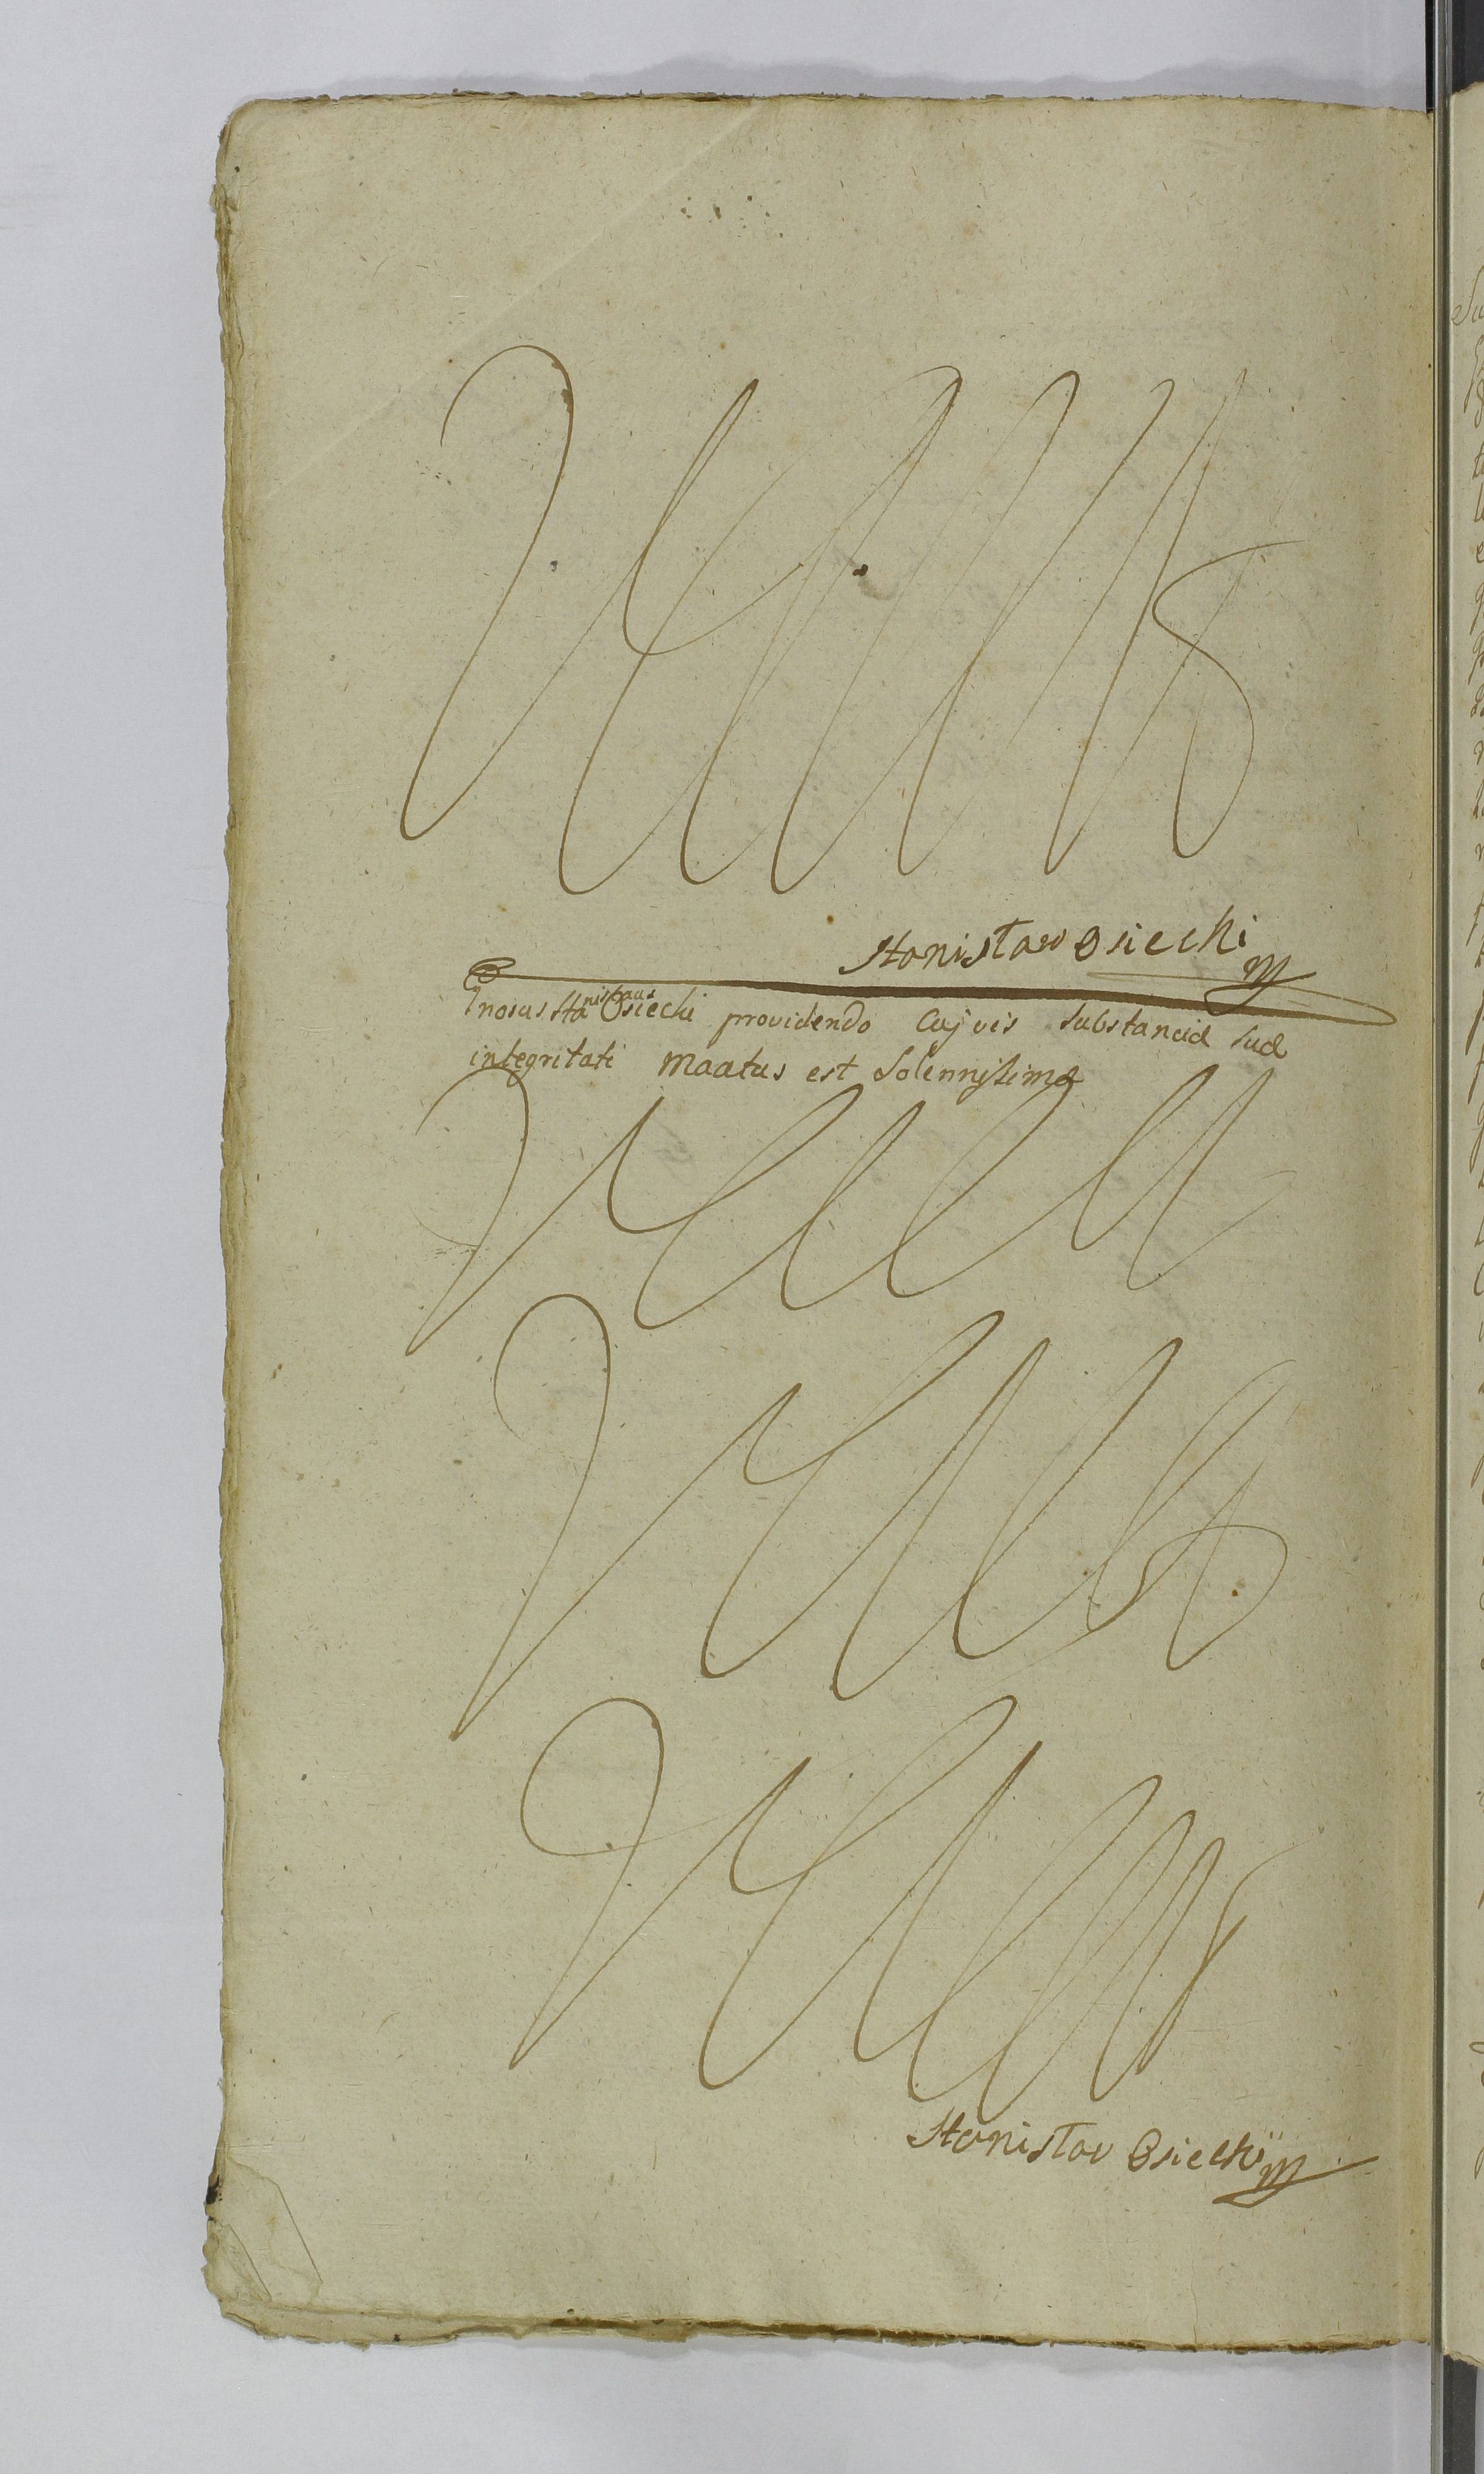 Stanisław Osiecki
Gnosus Stanislaus Osiecki providendo Cujvis Substanciæ Suæ
integritati Maatus est Solennissime
Stanisław Osiecki